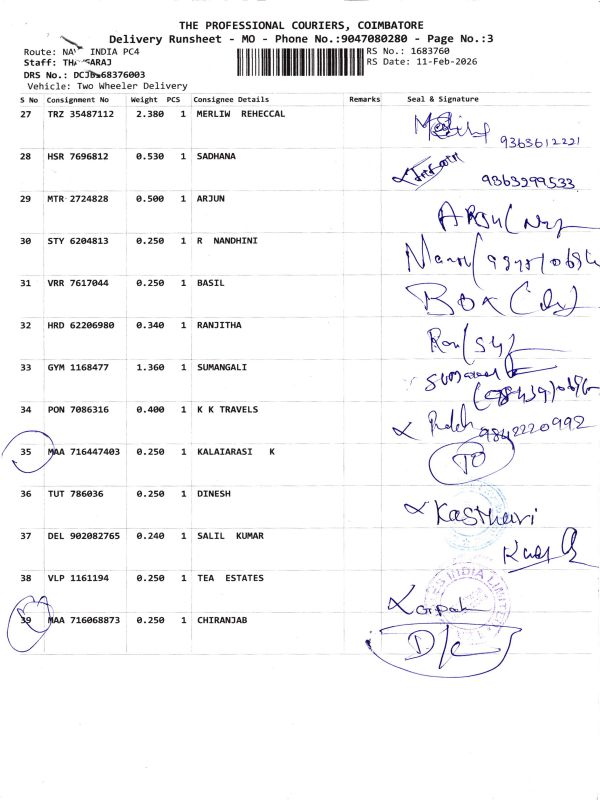 THE PROFESSIONAL COURIERS, COIMBATORE
Delivery Runsheet - MO - Phone No.:9047080280 - Page No.:3
Route: NAV INDIA PC4
RS No.: 1683760
Staff:
RS Date: 11-Feb-2026
DRS No.:
Vehicle: Two Wheeler Delivery
S No Consignment No Weight PCS Consignee Details Remarks Seal & Signature
27 TRZ 35487112 2.380 1 MERLIW REHECCAL
9363612221
28 HSR 7696812 0.530 1 SADHANA
9363299533
29 MTR 2724828 0.500 1 ARJUN
30 STY 6204813 0.250 1 R NANDHINI
31 VRR 7617044 0.250 1 BASIL
BOX
32 HRD 62206980 0.340 1 RANJITHA
33 GYM 1168477 1.360 1 SUMANGALI
34 PON 7086316 0.400 1 K K TRAVELS
9842220992
35 MAA 716447403 0.250 1 KALAIARASI K
TO
36 TUT 786036 0.250 1 DINESH
Kasthuri
37 DEL 902082765 0.240 1 SALIL KUMAR
38 VLP 1161194 0.250 1 TEA ESTATES
39 MAA 716068873 0.250 1 CHIRANJAB
D/C